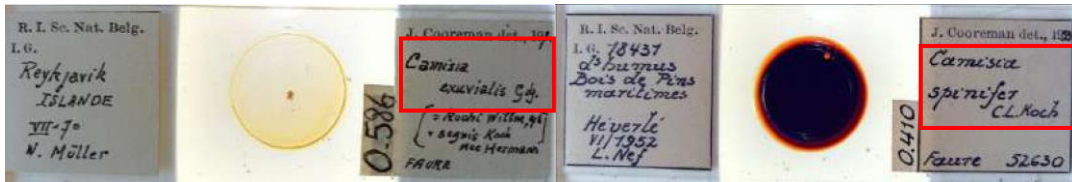 R. I. Sc. Nat. Belg.
I. G.
Reykjavik
ISLANDE
VII-70
W. Müller
0.586
J. Cooreman det., 19
Camisia
exuvialis Grdj.
segnis Koch
nec Hermann
FAURE
R. I. Sc. Nat. Belg.
I. G. 18437
ds humus
Bois de Pins
maritimes
Héverlé
VI/1952
L. Nef
0.410
J. Cooreman det., 1953
Camisia
spinifer
C.L.Koch
Faure 52630